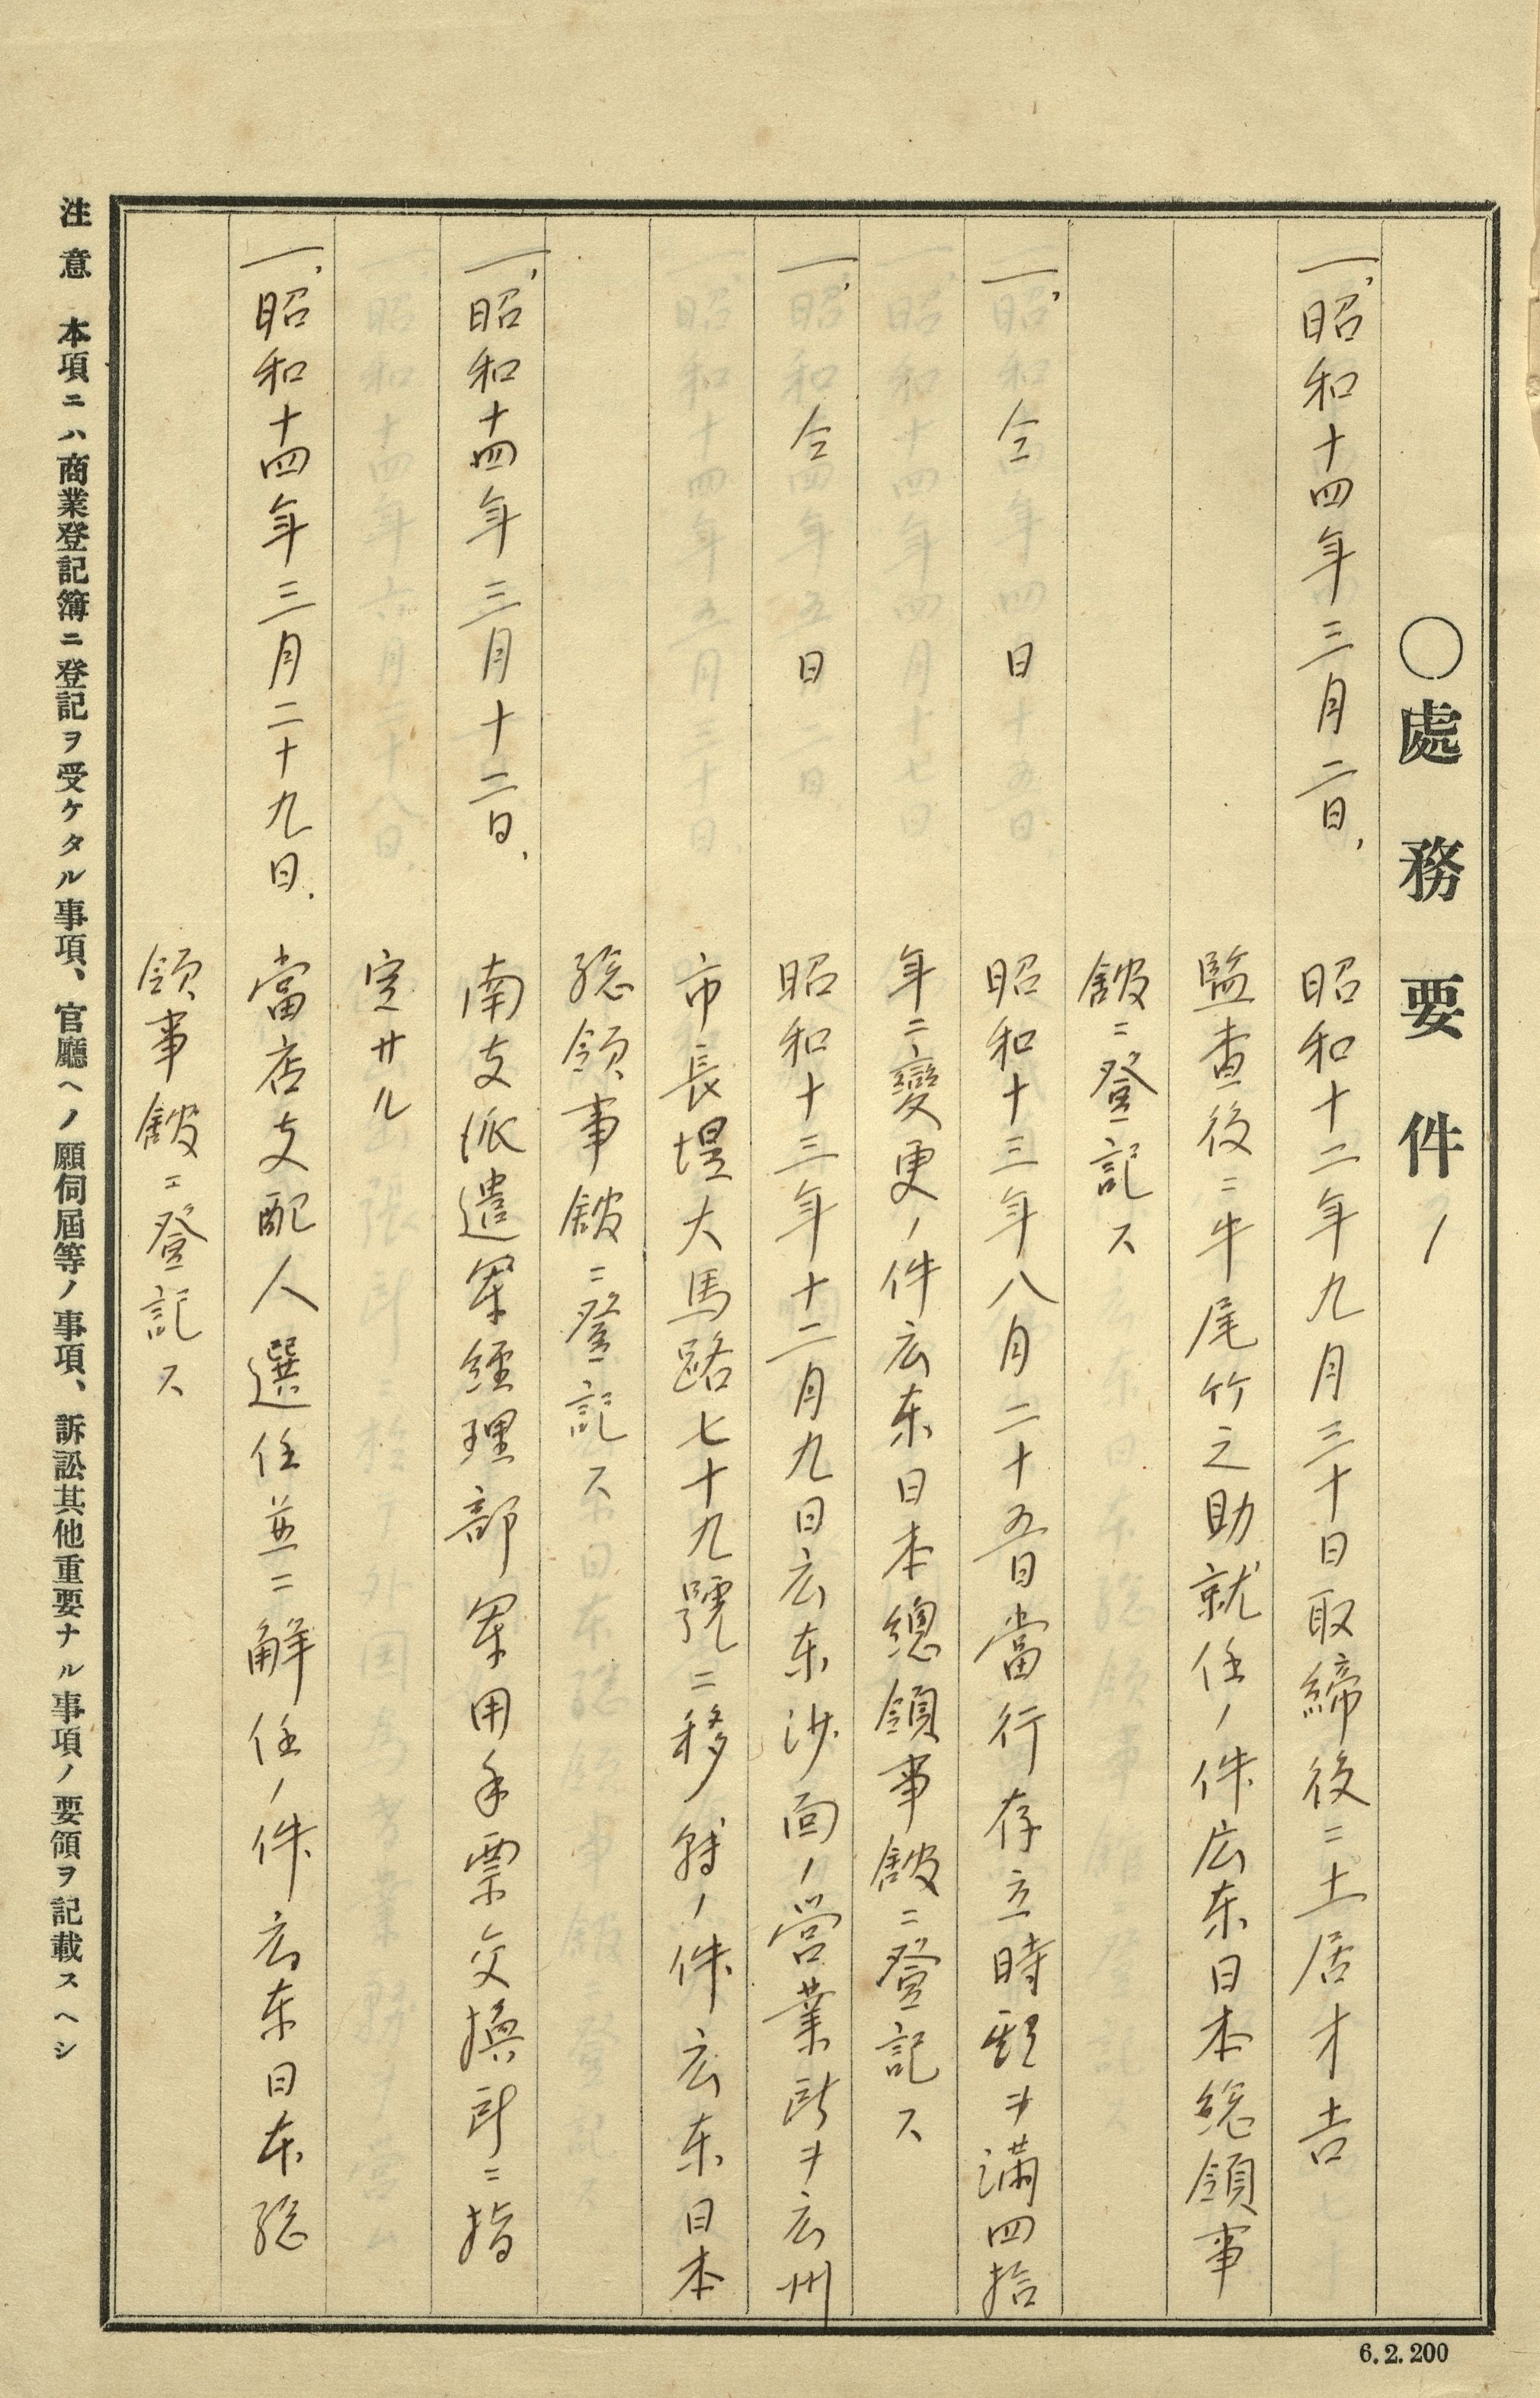 〇處務要件ノ
一、昭和十四年三月二日、 昭和十二年九月三十日取締役ニ土居才吉
監査役ニ牛尾竹之助就任ノ件広东日本総領事
舘ニ登記ス
一、仝日 昭和十三年八月二十五日當行存立時期ヲ満四拾
年ニ変更ノ件広东日本總領事舘ニ登記ス
一、仝日 昭和十三年十二月九日広东沙面ノ営業所ヲ広州
市長堤大馬路七十九號ニ移轉ノ件広东日本
総領事舘ニ登記ス
一、昭和十四年三月十二日、 南支派遣軍経理部軍用手票交換所ニ指
定サル
一、昭和十四年三月二十九日、 當店支配人選任並ニ解任ノ件広东日本総
領事舘ニ登記ス
注意 本項ニハ商業登記簿ニ登記ヲ受ケタル事項、官廳ヘノ願伺屆等ノ事項、訴訟其他重要ナル事項ノ要領ヲ記載スヘシ
6.2.200